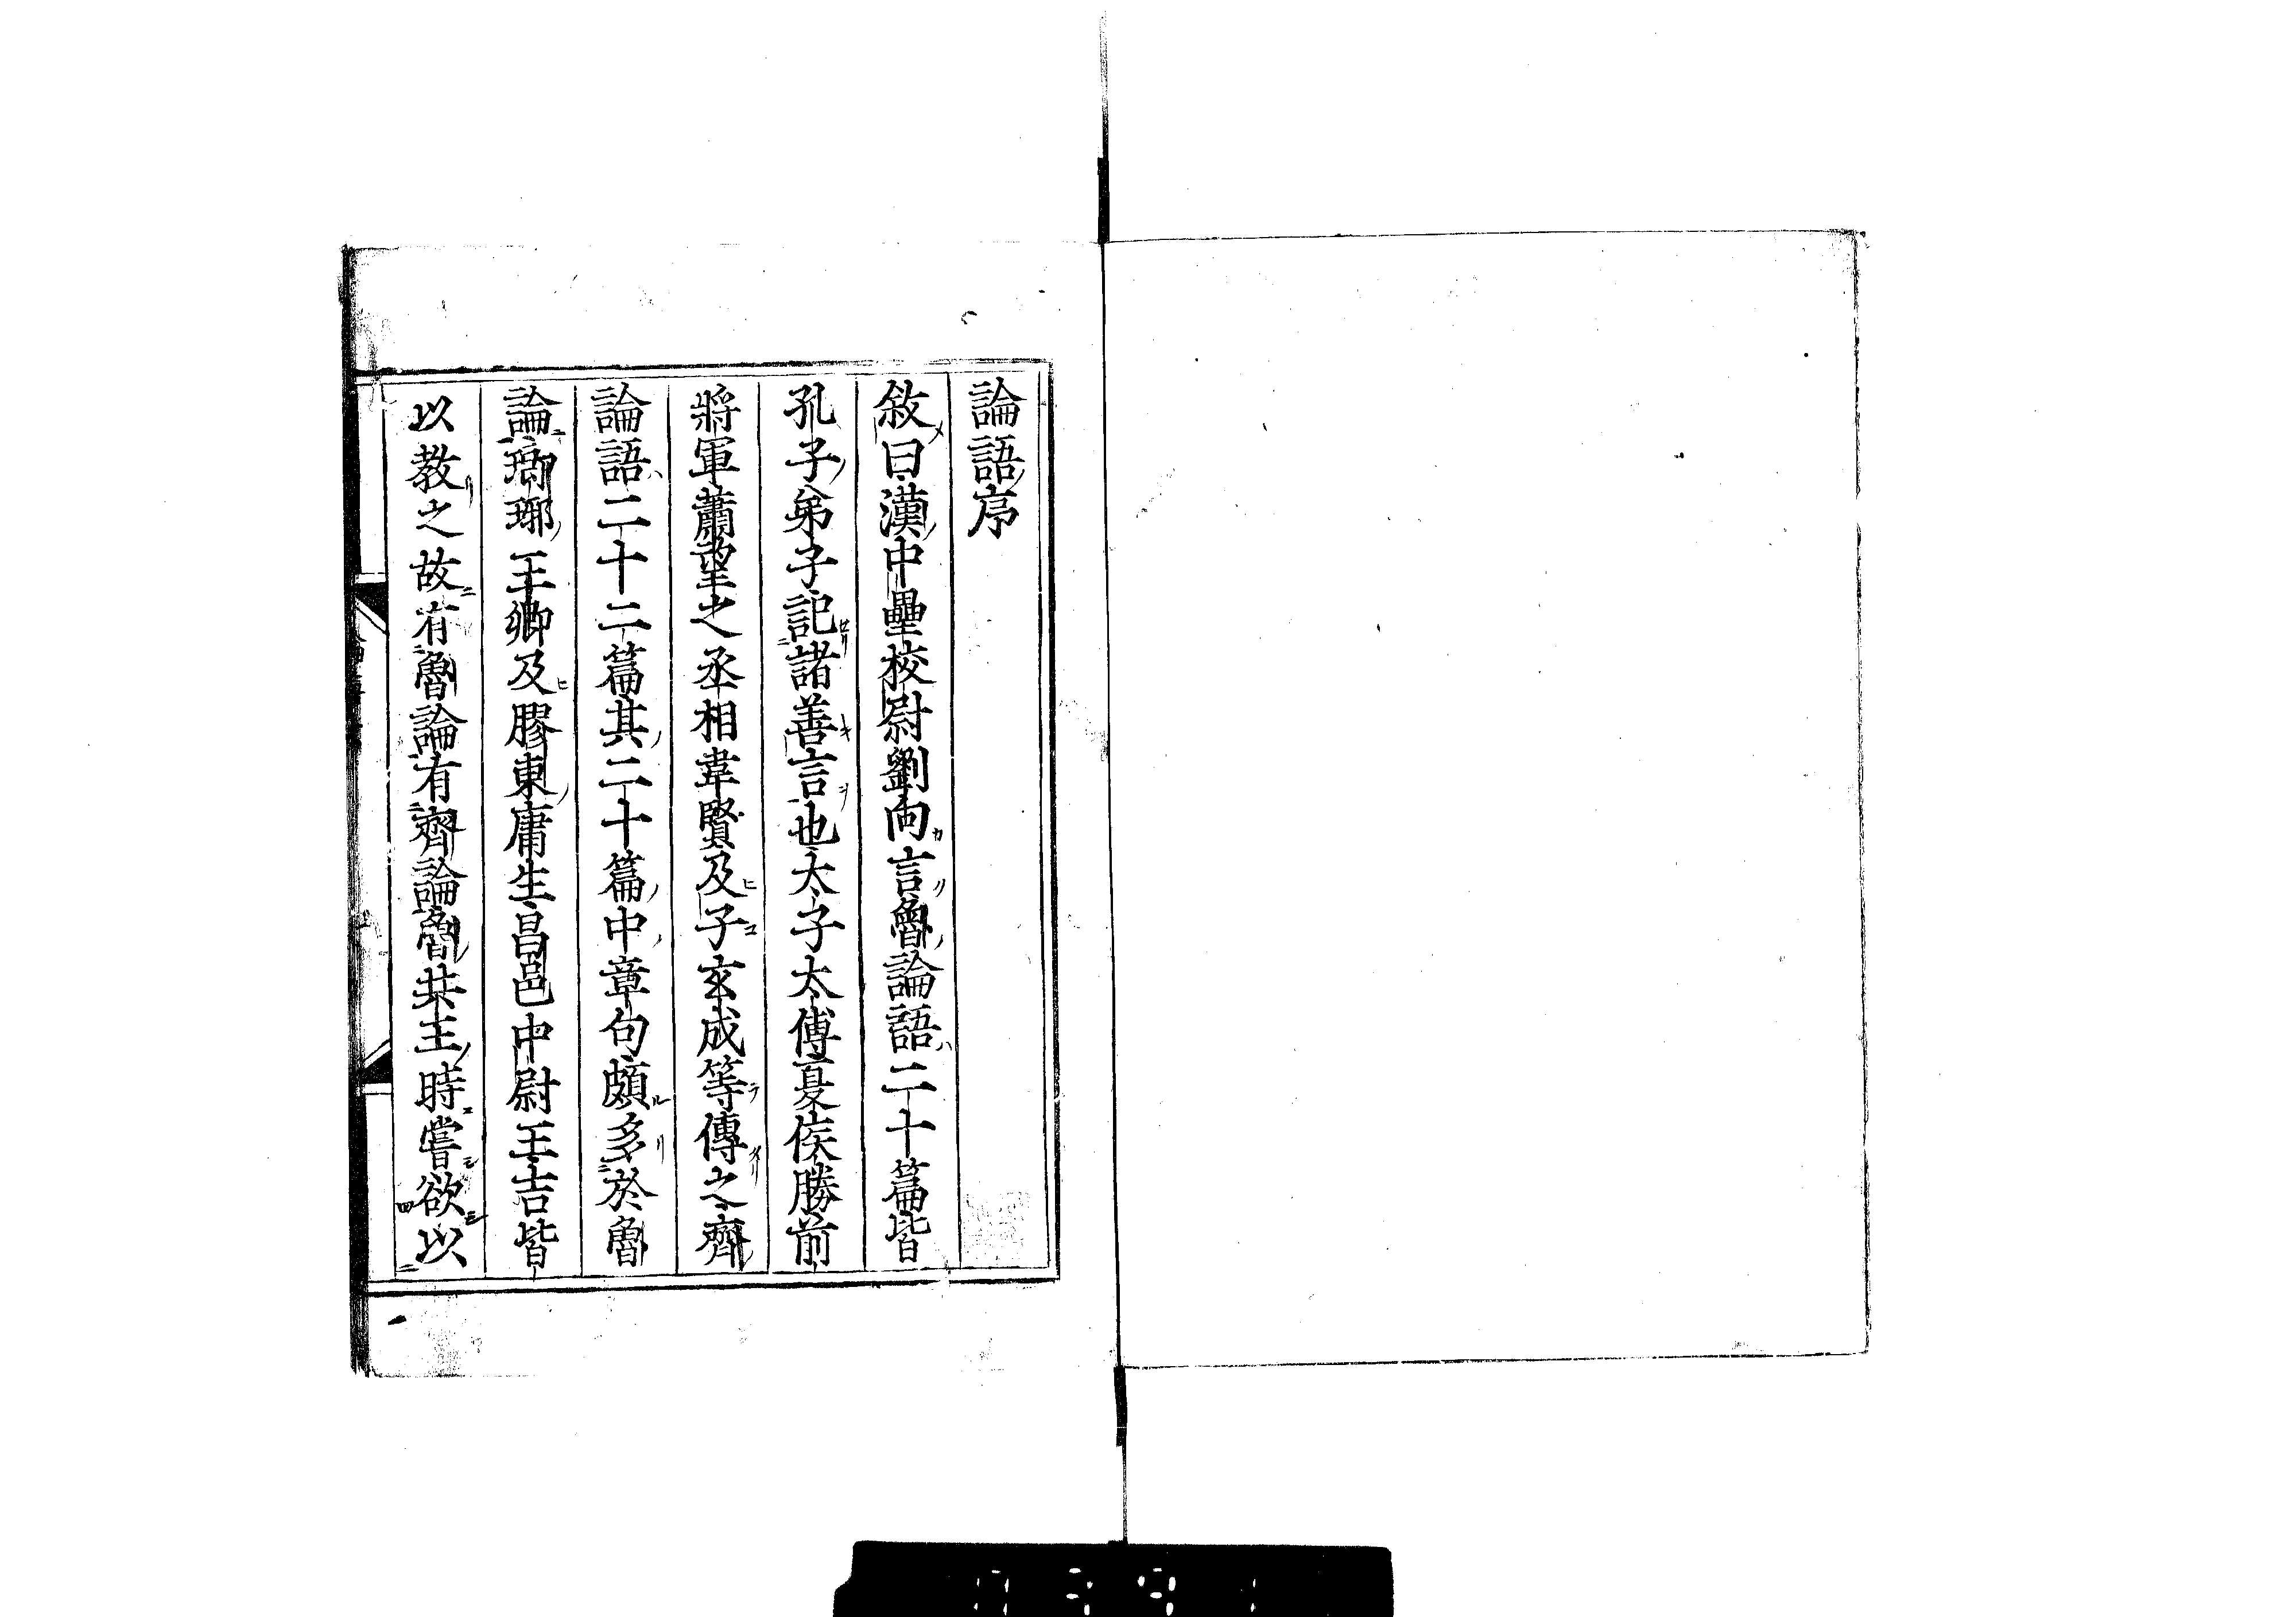 論語序
敘曰漢中壘校尉劉向言魯論語二十篇皆
孔子弟子記諸善言也太子太傅夏侯勝前
將軍蕭望之丞相韋賢及子玄成等傳之齊
論語二十二篇其二十篇中章句頗多於魯
論瑯琊王卿及膠東庸生昌邑中尉王吉皆
以教之故有魯論有齊論魯共王時嘗欲以